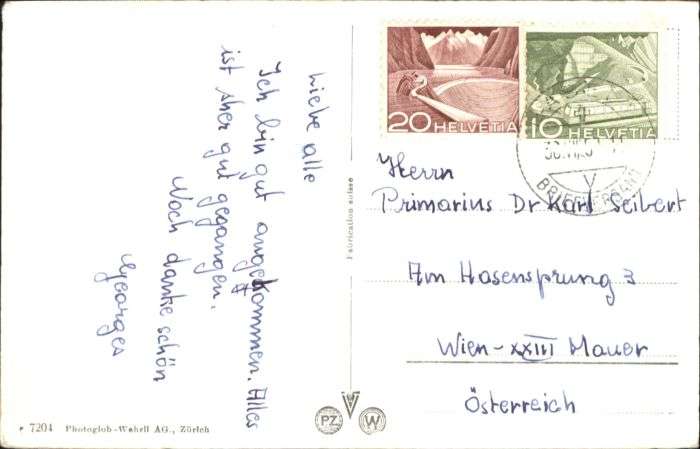 Liebe alle
Ich bin gut angekommen. Alles
ist sher gut gegangen.
Noch danke schön
Georges
Fabrication suisse
20 HELVETIA
10 HELVETIA
V
Herrn
Primarius Dr Karl Seibert
Am Hasensprung 3
Wien-XXIII Mauer
Österreich
7204 Photoglob-Wehrli AG., Zürich
PZ W